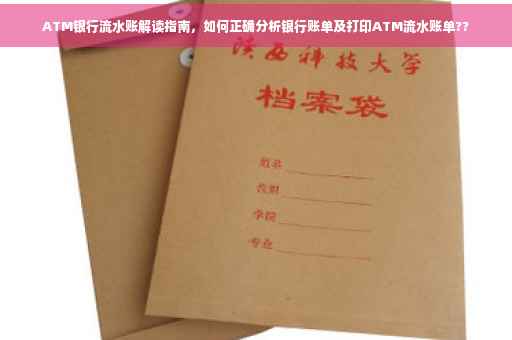 ATM银行流水账解读指南，如何正确分析银行账单及打印ATM流水账单??
陕西科技大学
档案袋
姓名
学院
专业